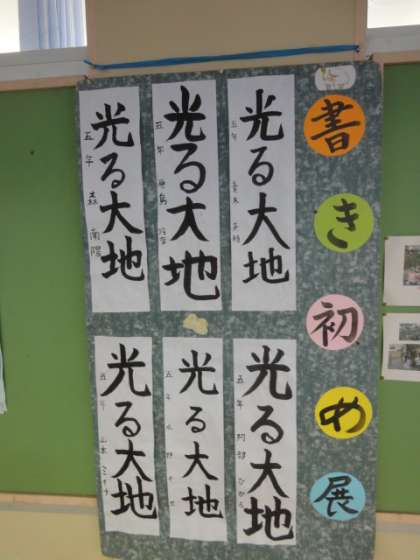 書き初め展
光る大地
五年
光る大地
五年
光る大地
五年 森 南陽
光る大地
五年 阿部 ひかる
光る大地
五年 水野
光る大地
五年 山本